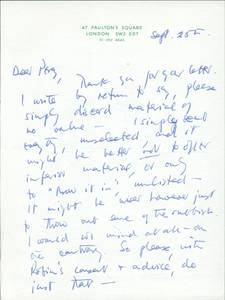 47 PAULTON'S SQUARE
LONDON SW3 5DT
Sept. 25th.
Dear
Thank you for your letter.
I write by return to say, please
simply discard material of
no value – I simply sent
unselected and it
might be better not to offer
inferior material, or only
to "throw it in", unlisted –
It might be however just
to throw out some of the rubbish
I would not mind at all – on
the contrary. So please, with
Robin's consent & advice, do
just that –